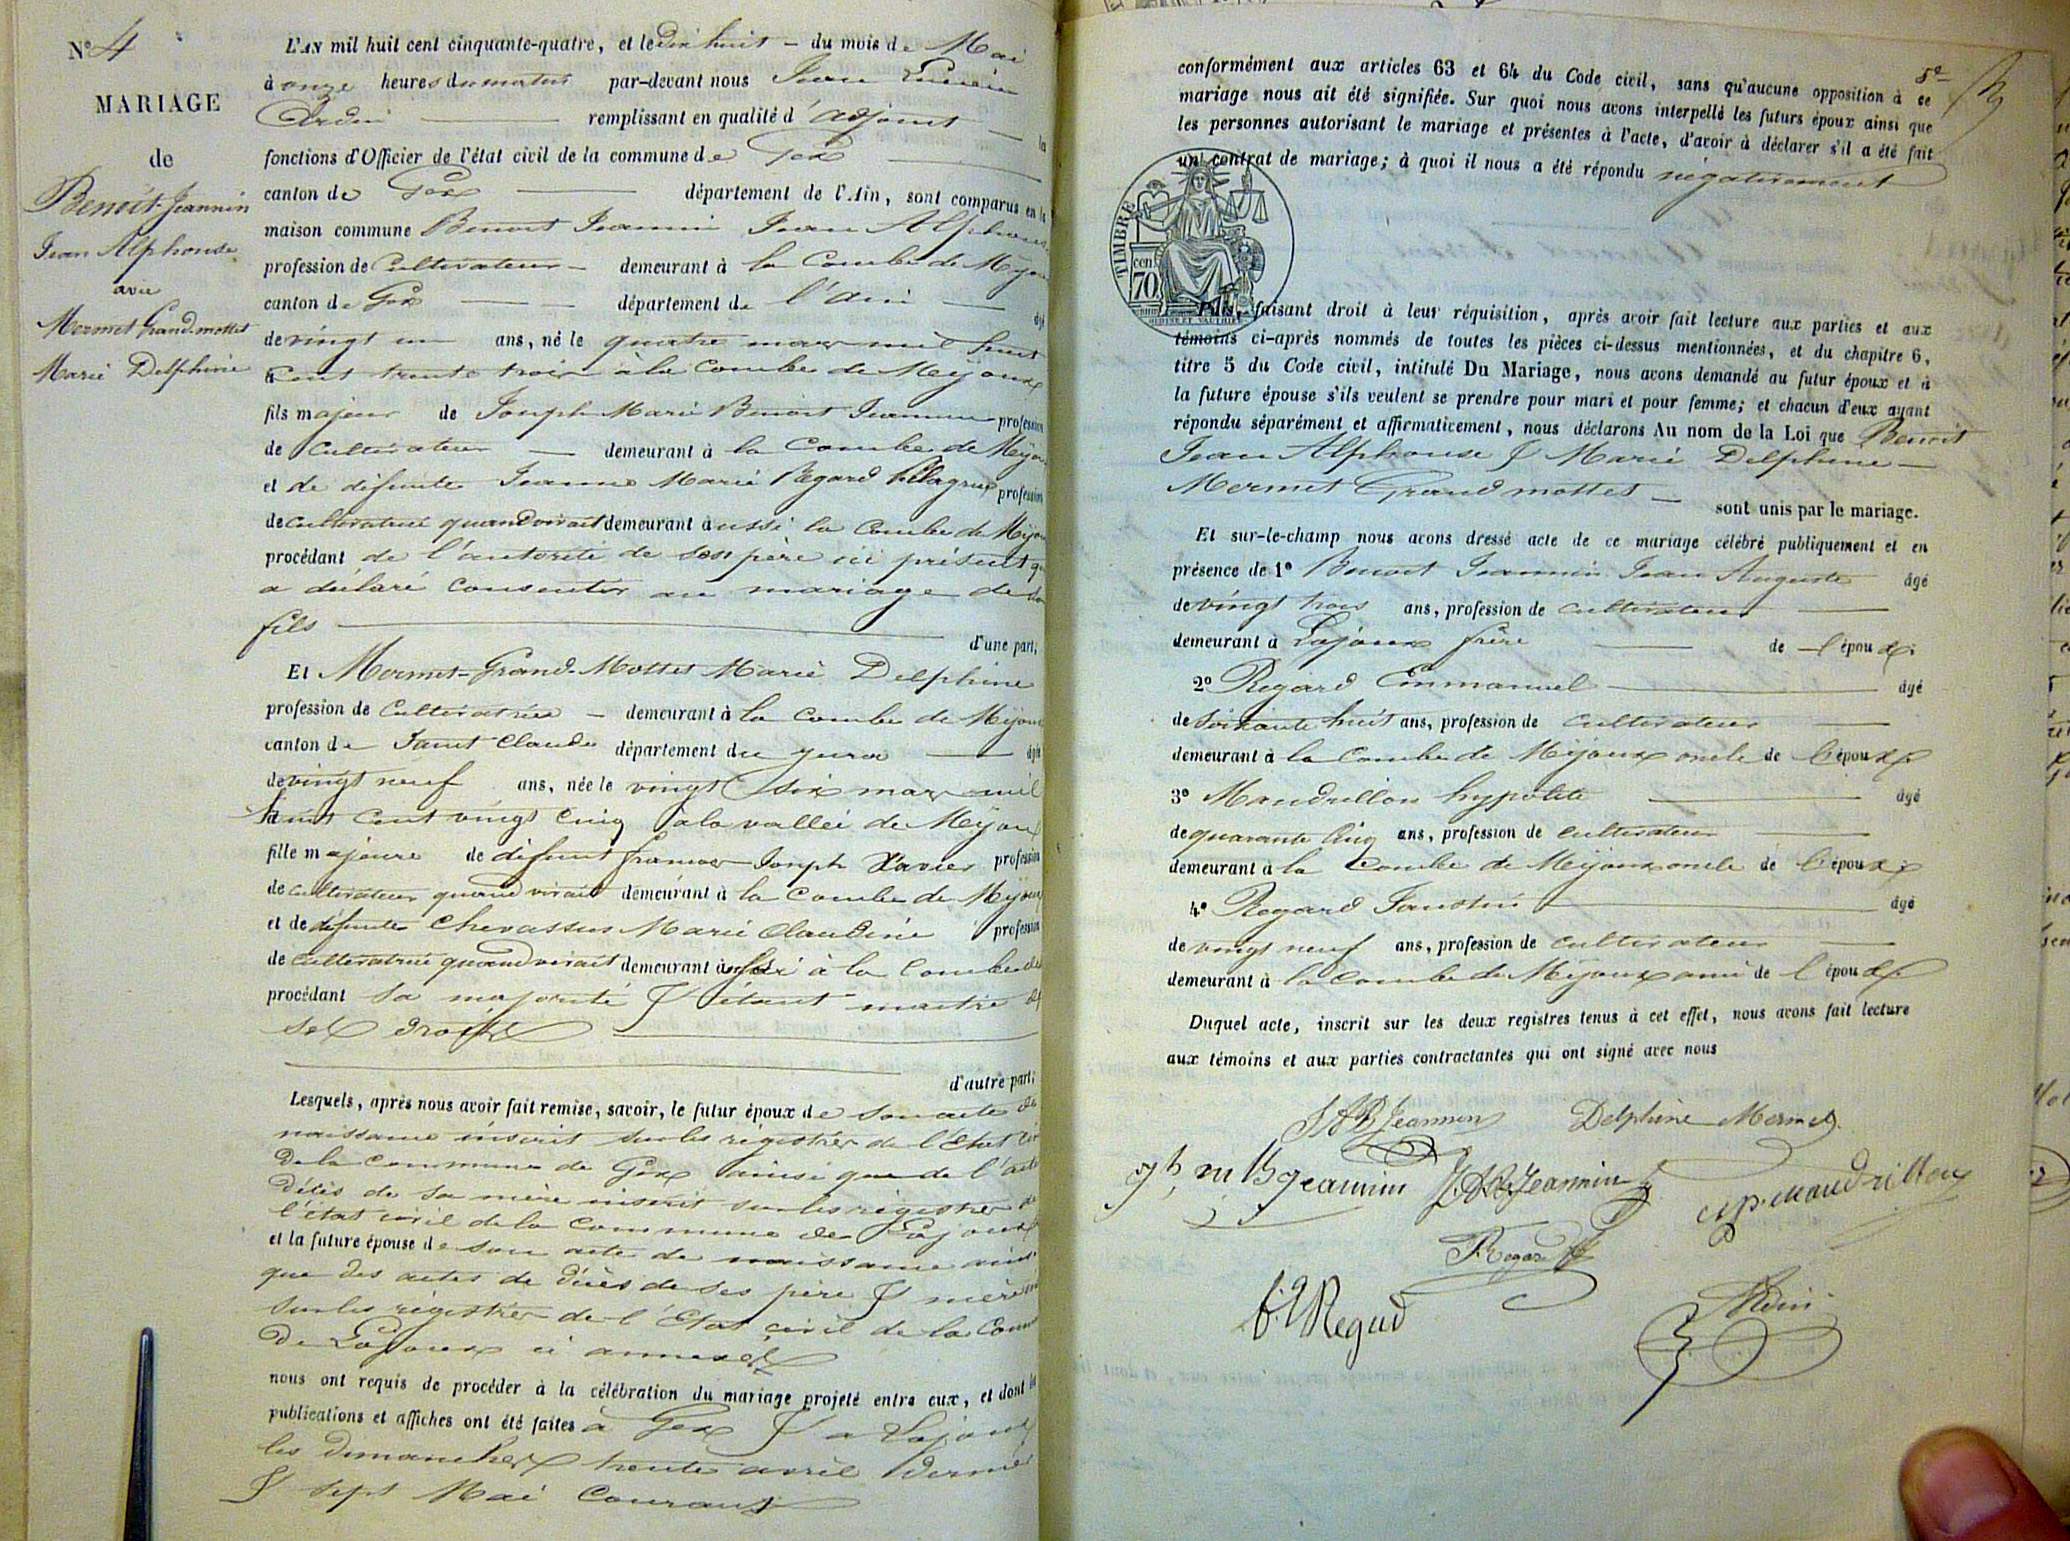 N° 4
MARIAGE
de
Benoit-Jeannin
Jean Alphonse
avec
Mermet Grand-mottet
Marie Delphine
L'AN mil huit cent cinquante-quatre, et le dix huit - du mois de Mai
à onze heures du matin par-devant nous Jean
remplissant en qualité d'adjoint la
fonctions d'Officier de l'état civil de la commune de Gex
canton de Gex département de l'Ain, sont comparus en la
maison commune Benoit Jeannin Jean Alphonse
profession de Cultivateur demeurant à la Combe de Mijoux
canton de Gex département de l'ain âgé
de vingt un ans, né le quatre mars mil huit
cent trente trois à la Combe de Mijoux
fils majeur de Joseph Marie Benoit Jeannin profession
de Cultivateur demeurant à la Combe de Mijoux
et de défunte Jeanne Marie Regard profession
de cultivatrice quand vivait demeurant aussi la Combe de Mijoux
procédant de l'autorité de son père ici présent qui
a déclaré consentir au mariage de son
fils d'une part;
Et Mermet-Grand-Mottet Marie Delphine
profession de Cultivatrice - demeurant à la Combe de Mijoux
canton de Saint Claude département du jura âgée
de vingt neuf ans, née le vingt six mars mil
huit cent vingt cinq à la vallée de Mijoux
fille majeure de défunt françois Joseph Xavier profession
de cultivateur quand vivait demeurant à la Combe de Mijoux
et de défunte Chevassus Marie Claudine profession
de cultivatrice quand vivait demeurant aussi à la Combe de
procédant sa majorité & étant maitre de
ses droits
d'autre part;
Lesquels, après nous avoir fait remise, savoir, le futur époux de son acte de
naissance inscrit sur les régistres de l'Etat civ
De la commune de Gex ainsi que de l'acte
Décès de sa mère inscrit sur les régistres de
l'état civil de la commune de Lajoux
et la future épouse de son acte de naissance ainsi
que des actes de décès de ses père & mère
sur les régistres de l'Etat civil de la Com
De Lajoux ci annexés
nous ont requis de procéder à la célébration du mariage projeté entre eux, et dont les
publications et affiches ont été faites à Gex & a Lajoux
les dimanches trente avril dernier
& sept Mai Courant
5e
conformément aux articles 63 et 64 du Code civil, sans qu'aucune opposition à ce
mariage nous ait été signifiée. Sur quoi nous avons interpellé les futurs époux ainsi que
les personnes autorisant le mariage et présentes à l'acte, d'avoir à déclarer s'il a été fait
un contrat de mariage; à quoi il nous a été répondu négativement
TIMBRE
cen
70
Puis, faisant droit à leur réquisition, après avoir fait lecture aux parties et aux
témoins ci-après nommés de toutes les pièces ci-dessus mentionnées, et du chapitre 6,
titre 5 du Code civil, intitulé Du Mariage, nous avons demandé au futur époux et à
la future épouse s'ils veulent se prendre pour mari et pour femme; et chacun d'eux ayant
répondu séparément et affirmativement, nous déclarons Au nom de la Loi que Benoit
Jean Alphonse & Marie Delphine
Mermet Grand mottet
sont unis par le mariage.
Et sur-le-champ nous avons dressé acte de ce mariage célébré publiquement et en
présence de 1° Benoit Jeannin Jean Auguste âgé
de vingt trois ans, profession de cultivateur
demeurant à Lajoux frère de l'époux;
2° Regard Emmanuel âgé
de soixante huit ans, profession de cultivateur
demeurant à la Combe de Mijoux oncle de l'époux
3° Mandrillon hypolite âgé
de quarante cinq ans, profession de cultivateur
demeurant à la Combe de Mijoux oncle de l'époux;
4° Regard Faustin âgé
de vingt neuf ans, profession de cultivateur
demeurant à la Combe de Mijoux ami de l'époux
Duquel acte, inscrit sur les deux registres tenus à cet effet, nous avons fait lecture
aux témoins et aux parties contractantes qui ont signé avec nous
J A B Jeannin Delphine Mermet
Jh m B Jeannin J. A B. Jeannin hp. mandrillon
F. Regard
Regad